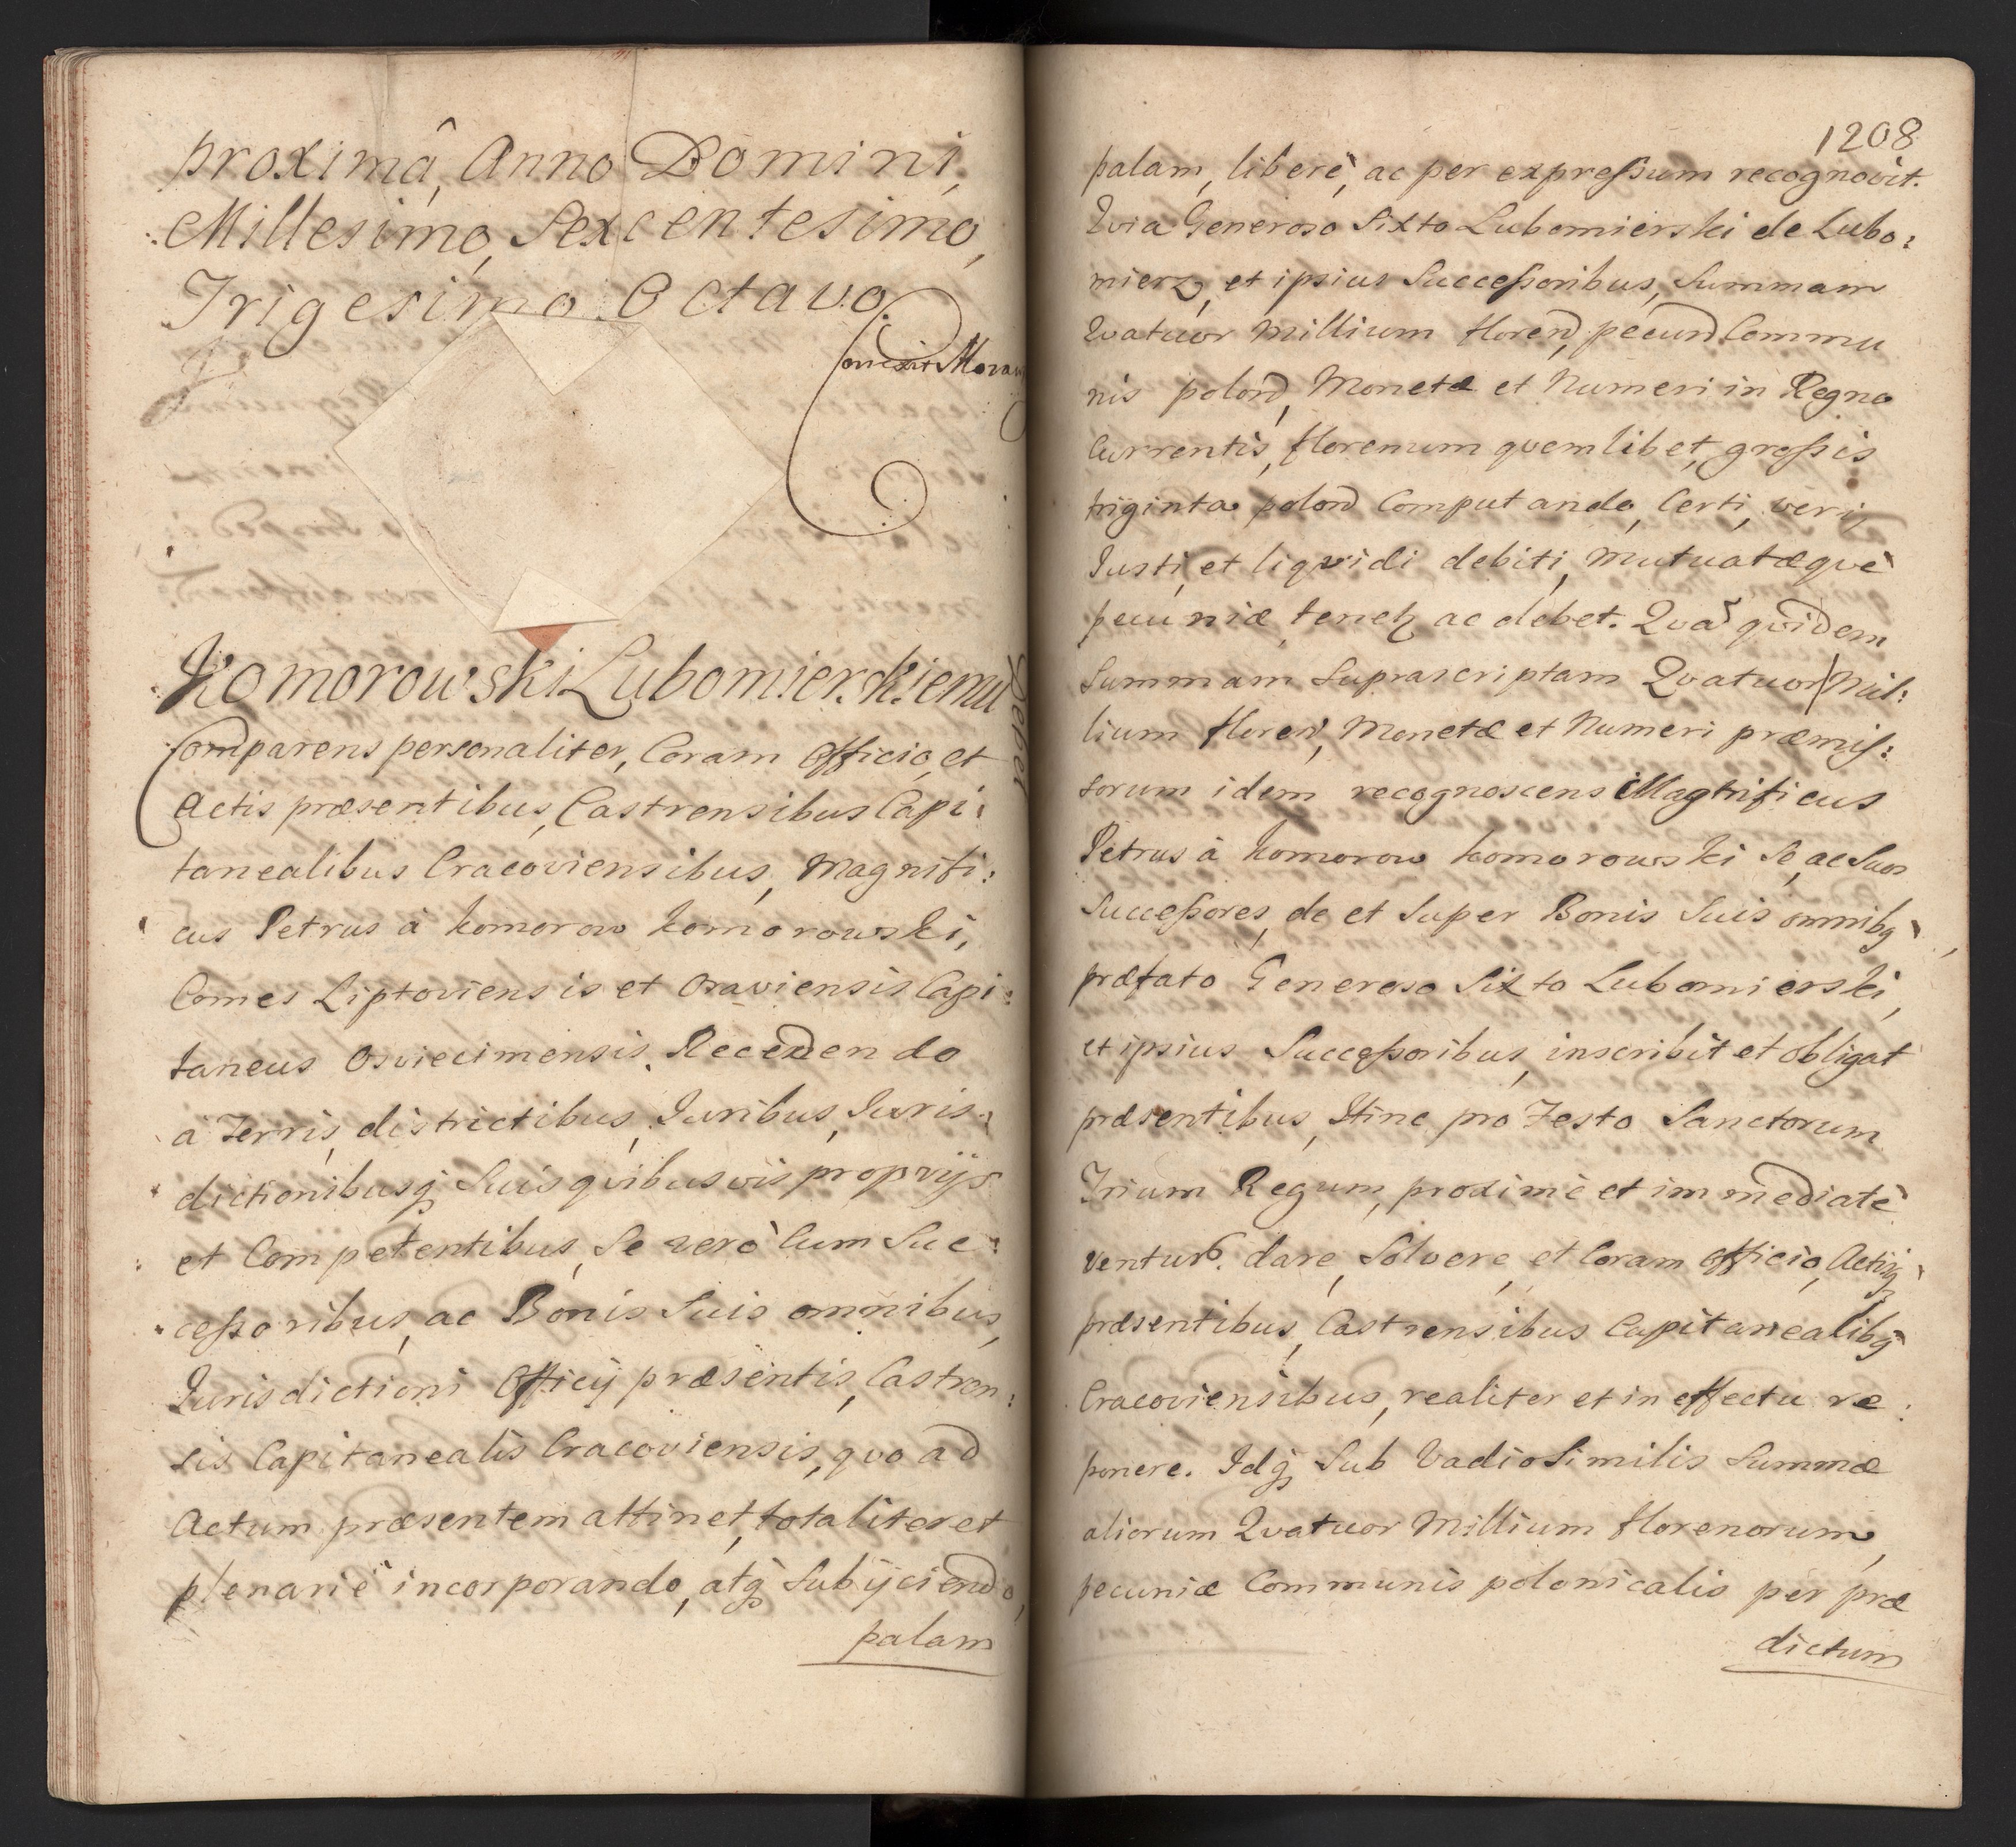 proximâ, Anno Domini,
Millesimo, Sexcentesimo,
Trigesimo Octavo.
Correxit
Komorowski Lubomierskiemu
Debet
Comparens personaliter, Coram Officio, et
Actis præsentibus, Castrensibus Capi:
tanealibus Cracoviensibus, Magnifi:
cus Petrus à Komorow Komorowski,
Comes Liptoviensis et Oraviensis Capi:
taneus Osviecimensis. Recedendo
à Terris, districtibus, Iuribus, Iuris:
dictionibusq; Suis qvibusvis proprijs
et Competentibus, Se verò Cum Suc:
ceßoribus, ac Bonis Suis omnibus,
Iurisdictioni Officij præsentis, Castren:
sis Capitanealis Cracoviensis, qvo ad
Actum præsentem attinet, totaliter et
plenariè incorporando, atq; Subijciendo,
palam
1208
palam, liberè, ac per expreßum recognovit.
Qvia Generoso Sixto Lubomierski de Lubo:
mierz, et ipsius Succeßoribus, Summam
Qvatuor Millium floren, pecun Commu
nis polon, Monetæ et Numeri in Regno
Currentis, florenum qvemlibet, großis
triginta polon Computando, Certi, veri,
Iusti, et liqvidi debiti, Mutuatæqvè
pecuniæ, tenetz ac debet. Qva qvidem
Summam Suprascriptam Qvatuor Mil:
lium floren, Monetæ et Numeri præmis:
sorum idem recognoscens Magnificus
Petrus à Komorow Komorowski Se, ac Suos
Succeßores, de et Super Bonis Suis omnibq
præfato Generoso Sixto Lubomierski,
et ipsius Succeßoribus, inscribit et obligat
præsentibus, Hinc pro Festo Sanctorum
Trium Regum, proximè et immediatè
ventur. dare, Solvere, et Coram Officio, Actisq;
præsentibus, Castrensibus Capitanealibq
Cracoviensibus, realiter et in effectu re:
ponere. Idq; Sub Vadio Similis Summæ
aliorum Qvatuor Millium florenorum,
pecuniæ Communis polonicalis per præ
dictum